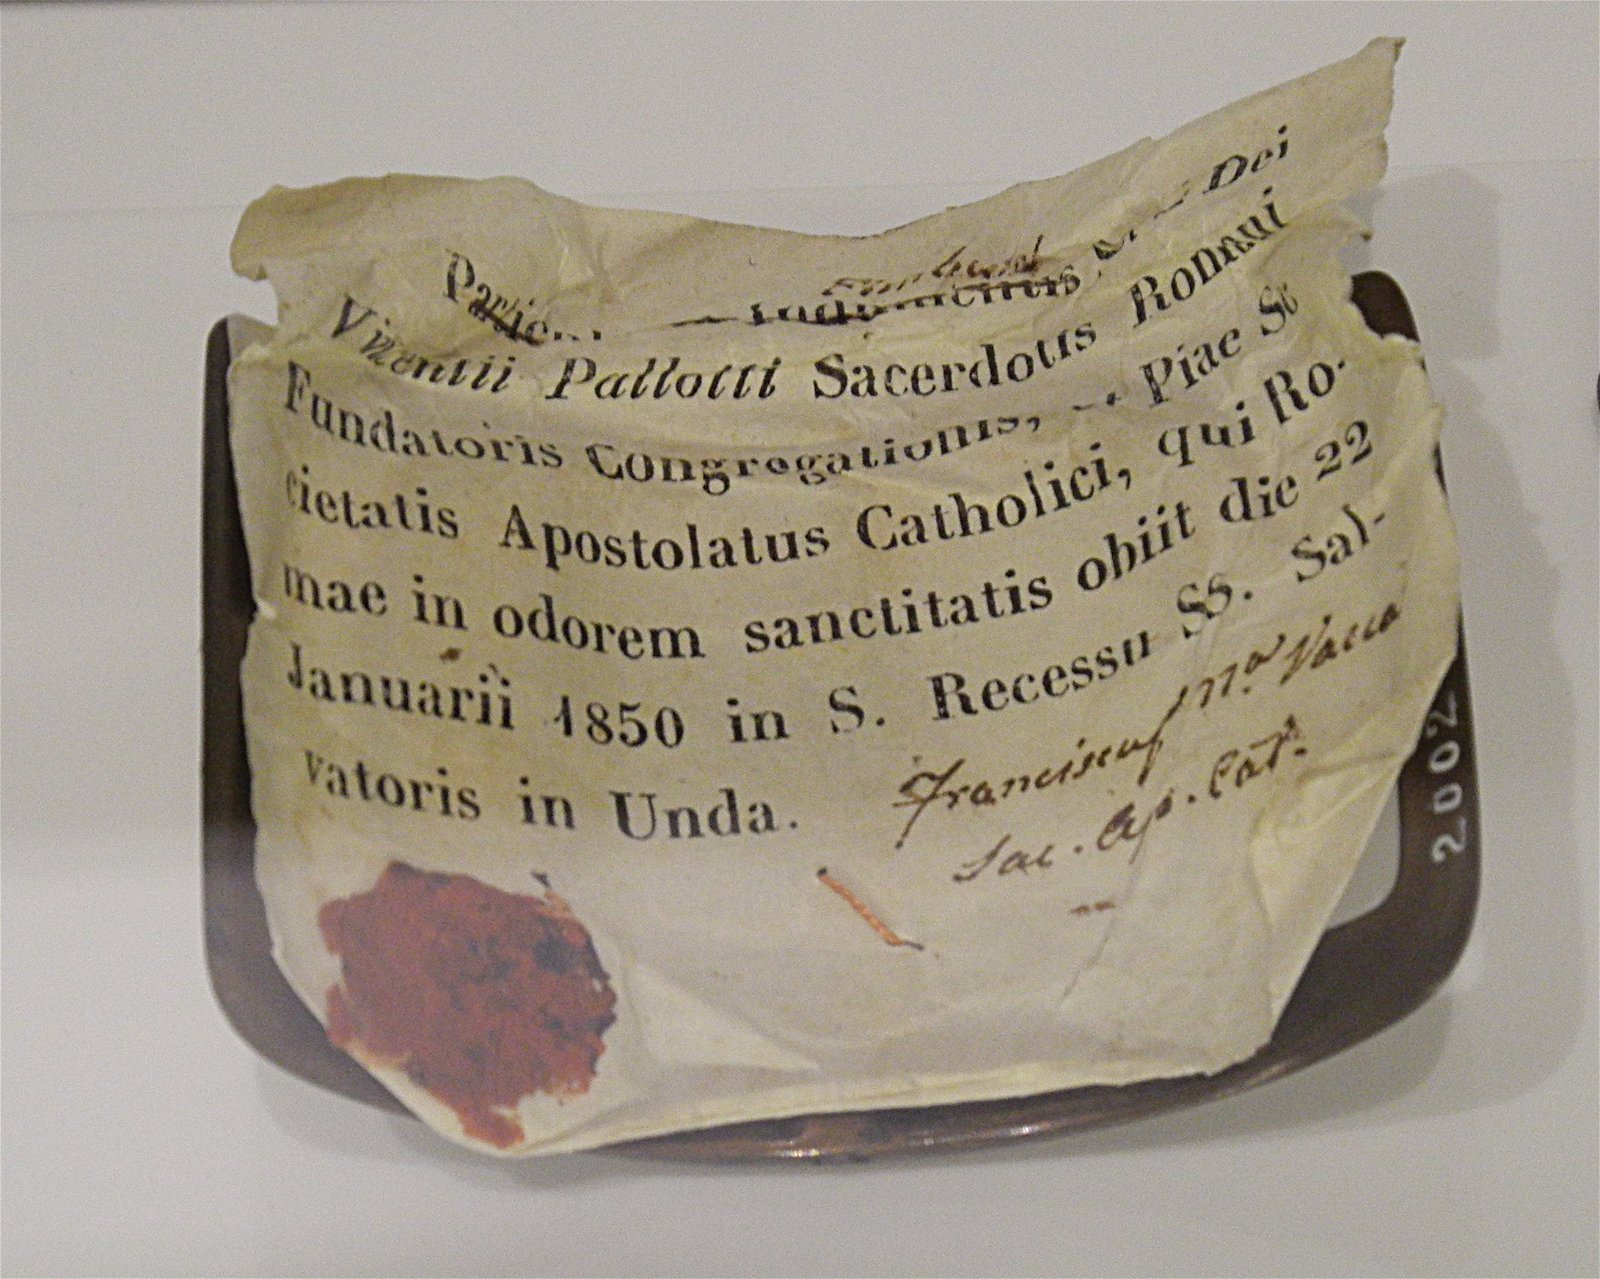 Dei
Vincentii Pallotti Sacerdotis Romani
Fundatoris Congregationis, Piae So
cietatis Apostolatus Catholici, qui Ro-
mae in odorem sanctitatis obiit die 22
Januarii 1850 in S. Recessu SS. Sal-
vatoris in Unda.
Franciscus Ma. Vacca
Sac. Ap. Cat.
2002